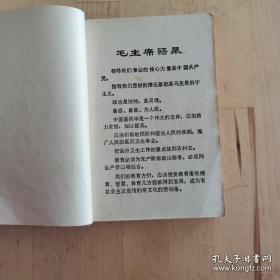 毛主席语录
领导我们事业的核心力量是中国共产
党。
指导我们思想的理论基础是马克思列宁
主义。
政治是统帅，是灵魂。
备战、备荒、为人民。
中国医药学是一个伟大的宝库，应当努
力发掘，加以提高。
应当积极地预防和医治人民的疾病，推
广人民的医药卫生事业。
把医疗卫生工作的重点放到农村去。
教育必须为无产阶级政治服务，必须同
生产劳动相结合。
我们的教育方针，应该使受教育者在德
育、智育、体育几方面都得到发展，成为有
社会主义觉悟的有文化的劳动者。
孔夫子旧书网